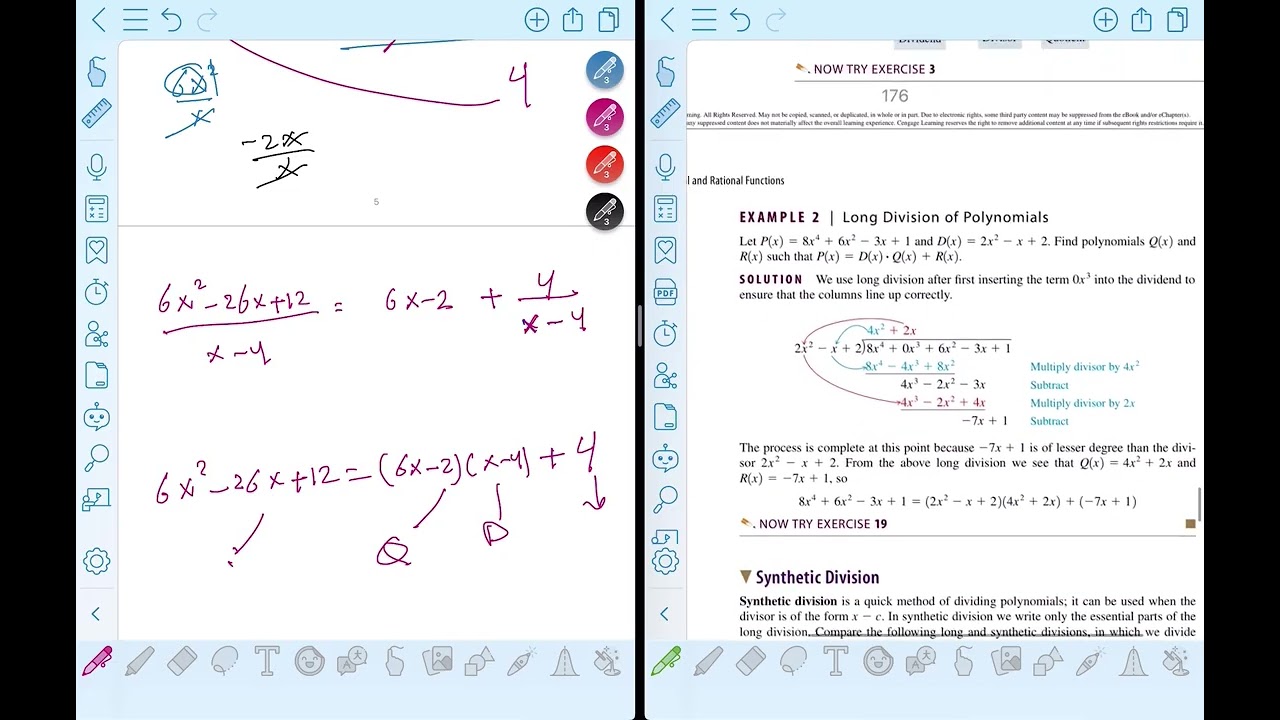 4
6x²
x
-2x
x
5
6x² - 26x + 12 = 6x - 2 + 4
x - 4 x - 4
6x² - 26x + 12 = (6x - 2)(x - 4) + 4
Q D
3
3
3
3
Dividend Divisor Quotient
NOW TRY EXERCISE 3
176
rning. All Rights Reserved. May not be copied, scanned, or duplicated, in whole or in part. Due to electronic rights, some third party content may be suppressed from the eBook and/or eChapter(s).
any suppressed content does not materially affect the overall learning experience. Cengage Learning reserves the right to remove additional content at any time if subsequent rights restrictions require it.
l and Rational Functions
EXAMPLE 2 | Long Division of Polynomials
Let P(x) = 8x⁴ + 6x² − 3x + 1 and D(x) = 2x² − x + 2. Find polynomials Q(x) and
R(x) such that P(x) = D(x) · Q(x) + R(x).
SOLUTION We use long division after first inserting the term 0x³ into the dividend to
ensure that the columns line up correctly.
4x² + 2x
2x² − x + 2)8x⁴ + 0x³ + 6x² − 3x + 1
8x⁴ − 4x³ + 8x² Multiply divisor by 4x²
4x³ − 2x² − 3x Subtract
4x³ − 2x² + 4x Multiply divisor by 2x
−7x + 1 Subtract
The process is complete at this point because −7x + 1 is of lesser degree than the divi-
sor 2x² − x + 2. From the above long division we see that Q(x) = 4x² + 2x and
R(x) = −7x + 1, so
8x⁴ + 6x² − 3x + 1 = (2x² − x + 2)(4x² + 2x) + (−7x + 1)
NOW TRY EXERCISE 19
Synthetic Division
Synthetic division is a quick method of dividing polynomials; it can be used when the
divisor is of the form x − c. In synthetic division we write only the essential parts of the
long division. Compare the following long and synthetic divisions, in which we divide
PDF